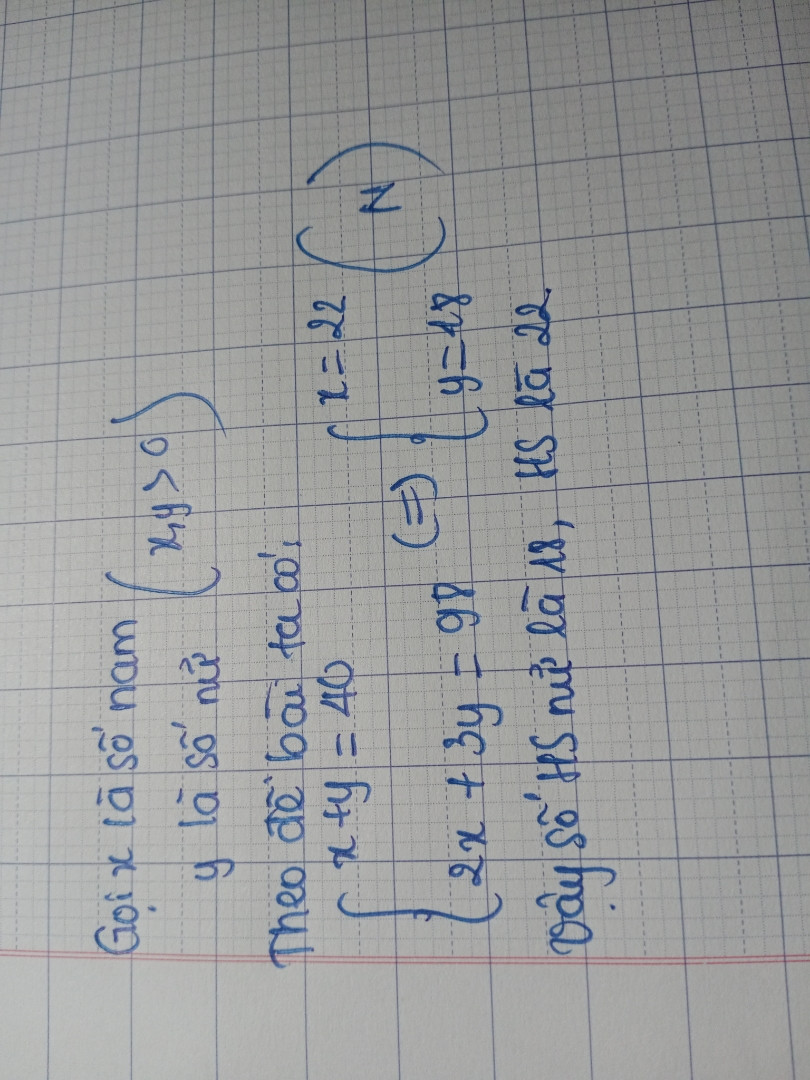 Gọi x là số nam (x,y > 0)
y là số nữ
Theo đề bài ta có,
{ x + y = 40 (=) { x = 22 (N)
{ 2x + 3y = 98 { y = 18
Vậy số HS nữ là 18, HS là 22.